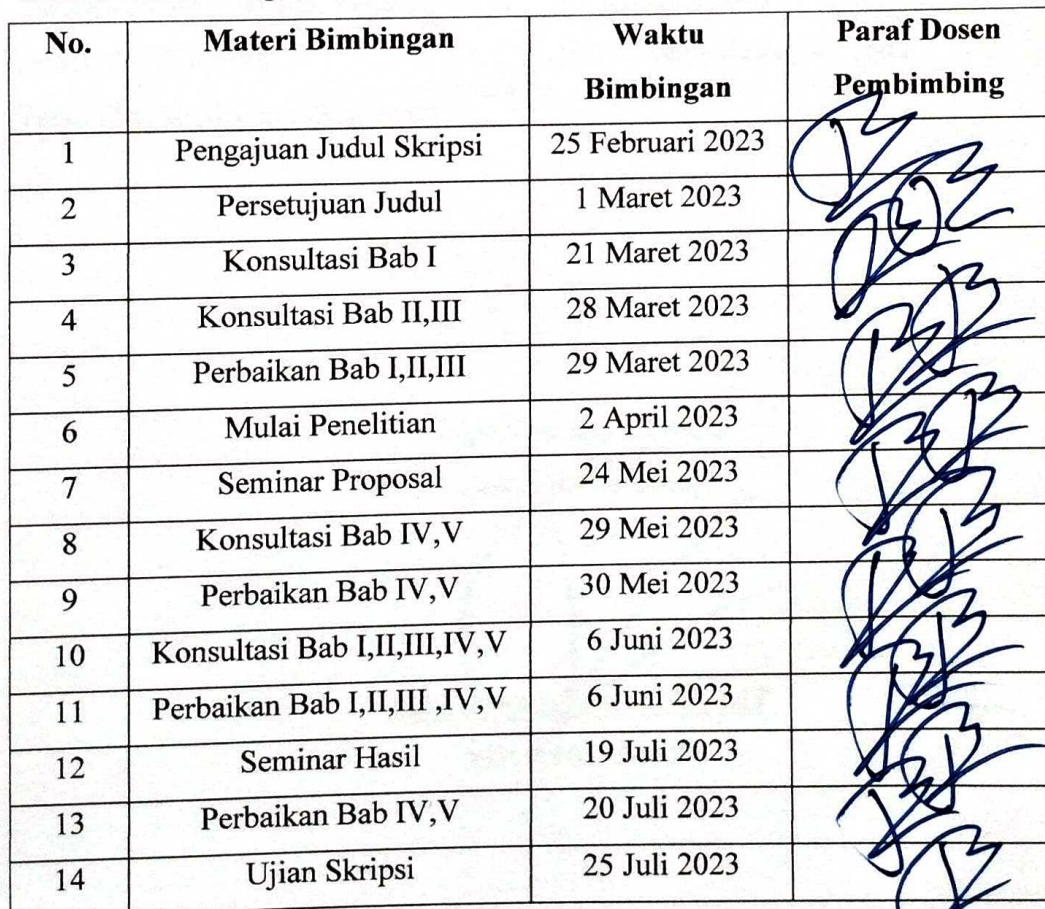 No. Materi Bimbingan Waktu Bimbingan Paraf Dosen Pembimbing
1 Pengajuan Judul Skripsi 25 Februari 2023
2 Persetujuan Judul 1 Maret 2023
3 Konsultasi Bab I 21 Maret 2023
4 Konsultasi Bab II,III 28 Maret 2023
5 Perbaikan Bab I,II,III 29 Maret 2023
6 Mulai Penelitian 2 April 2023
7 Seminar Proposal 24 Mei 2023
8 Konsultasi Bab IV,V 29 Mei 2023
9 Perbaikan Bab IV,V 30 Mei 2023
10 Konsultasi Bab I,II,III,IV,V 6 Juni 2023
11 Perbaikan Bab I,II,III ,IV,V 6 Juni 2023
12 Seminar Hasil 19 Juli 2023
13 Perbaikan Bab IV,V 20 Juli 2023
14 Ujian Skripsi 25 Juli 2023